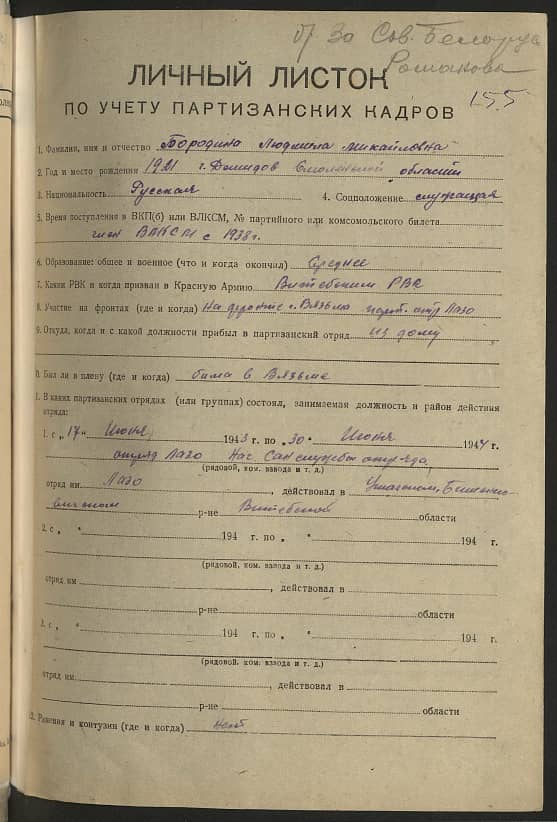 П/ За Сов. Беларусь
Романова
ЛИЧНЫЙ ЛИСТОК
155
ПО УЧЕТУ ПАРТИЗАНСКИХ КАДРОВ
1. Фамилия, имя и отчество Бородина Людмила Михайловна
2. Год и место рождения 1921 г. Демидов Смоленской области
3. Национальность Русская 4. Соцположение служащая
5. Время поступления в ВКП(б) или ВЛКСМ, № партийного или комсомольского билета
член ВЛКСМ с 1938 г.
6. Образование: общее и военное (что и когда окончил) Среднее
7. Каким РВК и когда призван в Красную Армию Витебским РВК
8. Участие на фронтах (где и когда) На фронте г. Вязьма парт. отр. Лазо
9. Откуда, когда и с какой должности прибыл в партизанский отряд из дому
0. Был ли в плену (где и когда) была в Вязьме
1. В каких партизанских отрядах (или группах) состоял, занимаемая должность и район действия
отряда:
1. с „ 17 " Июня 1943 г. по „ 30 " Июня 1944 г.
отряд Лазо Нач. Сан службы отряда
(рядовой, ком. взвода и т. д.)
отряд им Лазо, действовал в Ушачском, Бешенко-
вичском р-не Витебской области
2. с „ " 194 г. по „ " 194 г.
(рядовой, ком. взвода и т. д.)
отряд им , действовал в
р-не области
3. с „ " 194 г. по „ " 194 г.
(рядовой, ком. взвода и т. д.)
отряд им. , действовал в
р-не области
2. Ранения и контузии (где и когда) нет